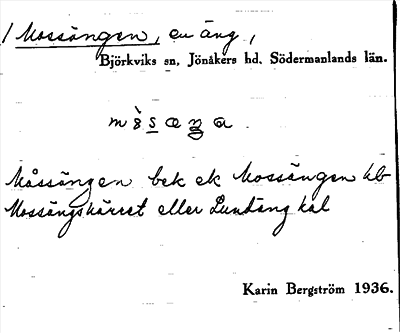 1 Mossängen, en äng,
Björkviks sn, Jönåkers hd. Södermanlands län.
Måssängen bek ek Mossängen hb
Mossängskärret eller Lundäng kal
Karin Bergström 1936.